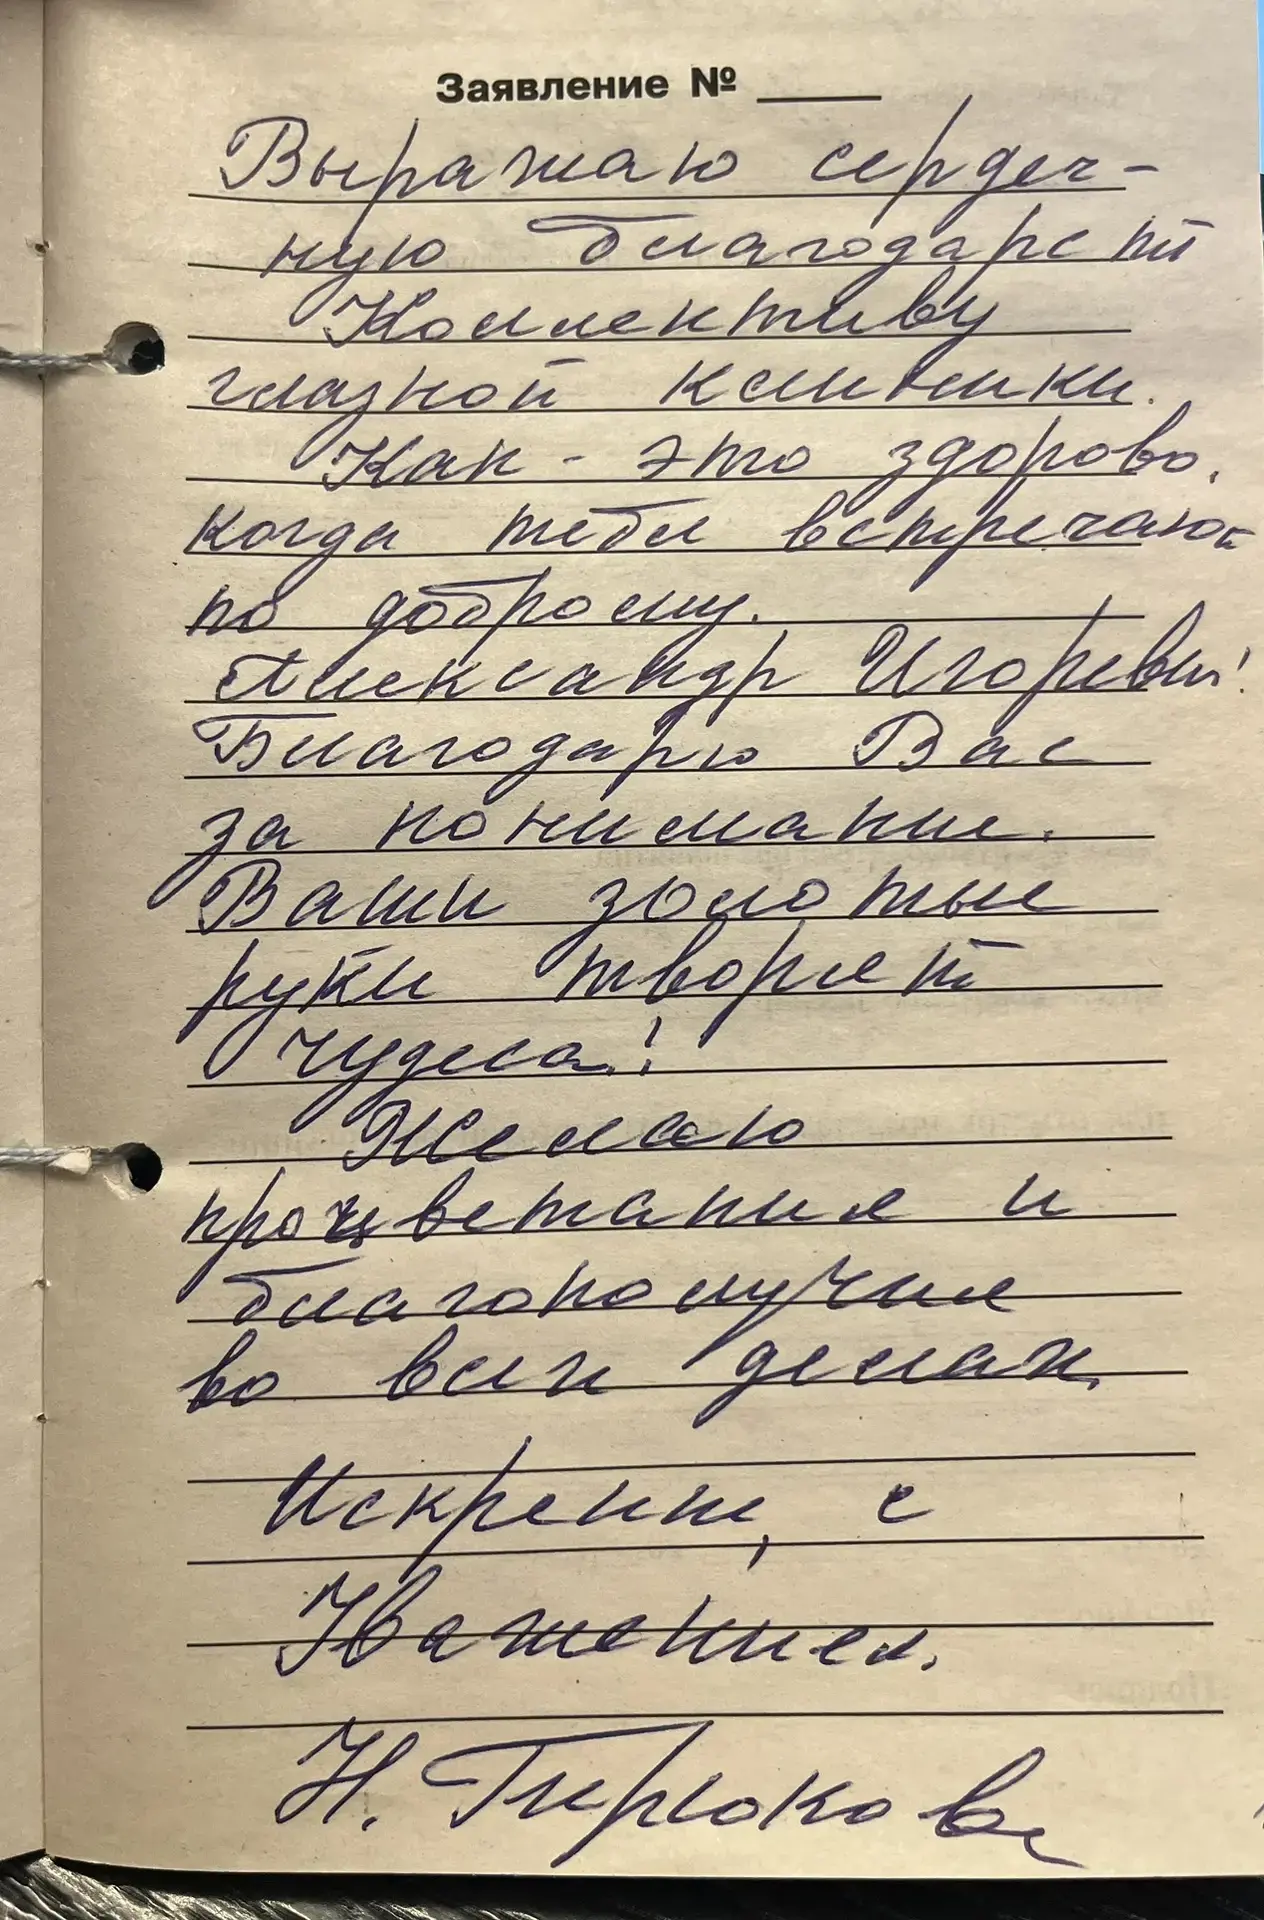 Заявление № ____
Выражаю сердеч-
ную благодарст
Коллективу
глазной клиники.
Как - это здорово,
когда тебя встречают
по доброму.
Александр Игоревич!
Благодарю Вас
за понимание.
Ваши золотые
руки творят
чудеса!
Желаю
процветания и
благополучия
во всех делах.
Искренне, с
Уважением.
Н.